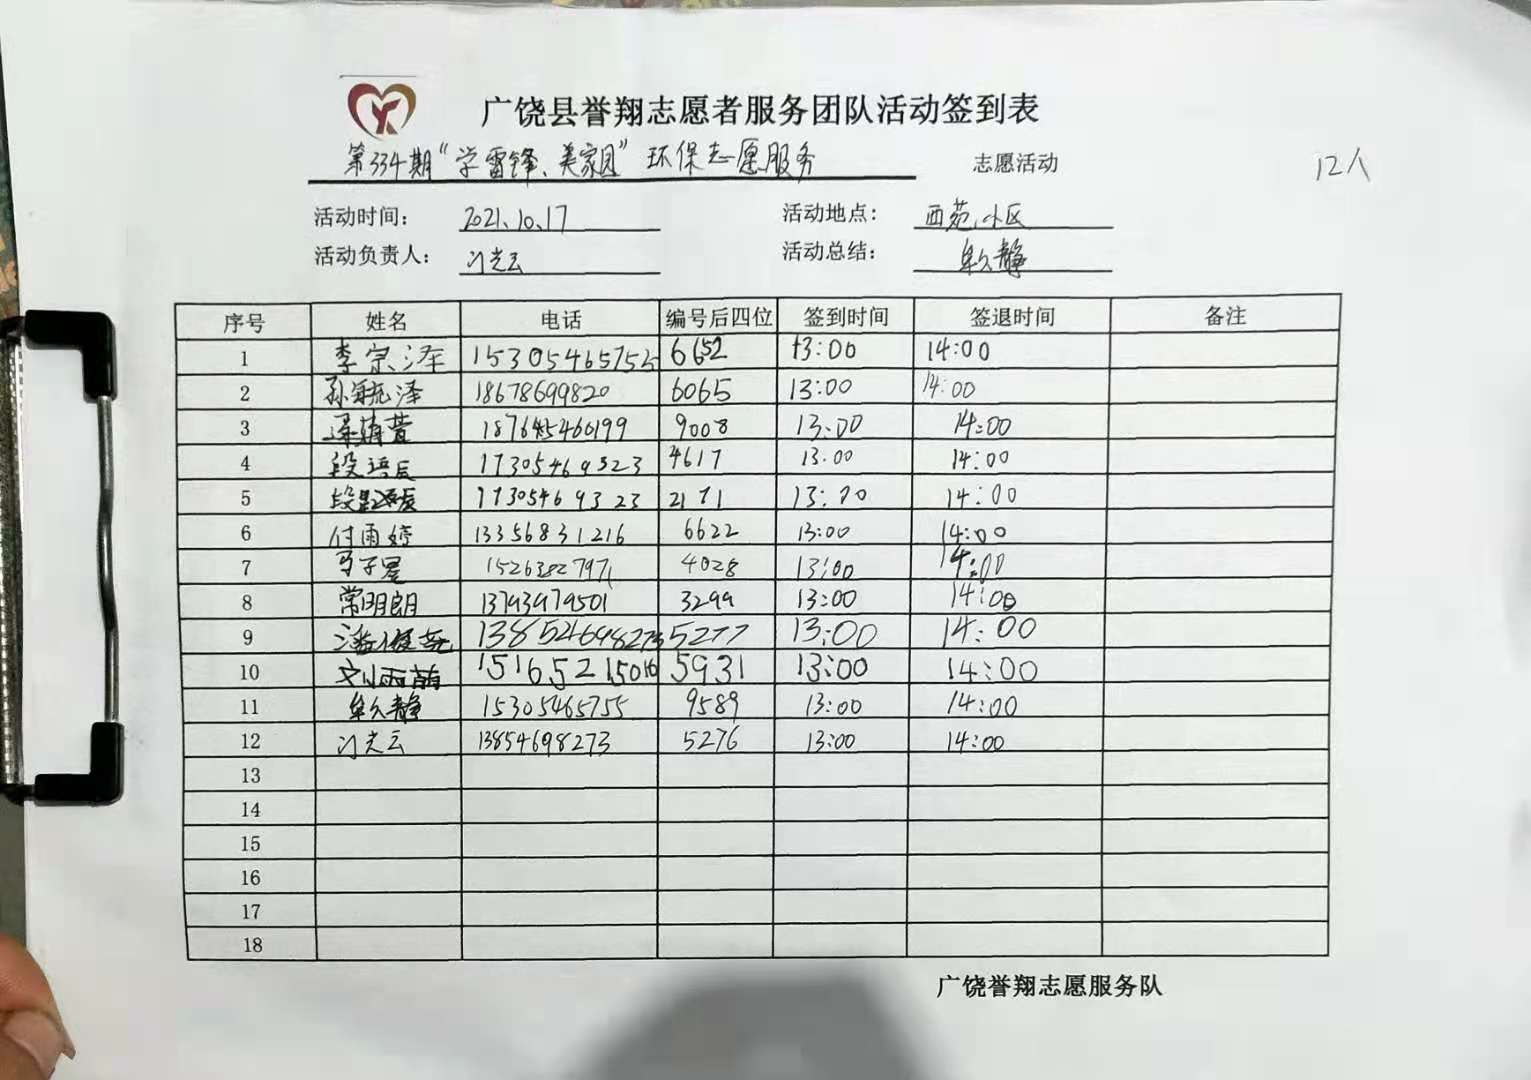 广饶县誉翔志愿者服务团队活动签到表
第334期“学雷锋、美家园”环保志愿服务 志愿活动 12人
活动时间: 2021.10.17 活动地点: 西苑小区
活动负责人: 光云 活动总结: 静
序号 姓名 电话 编号后四位 签到时间 签退时间 备注
1 李宗泽 15305465755 6652 13:00 14:00
2 孙毓泽 18678699820 6065 13:00 14:00
3 18765460199 9008 13:00 14:00
4 段语辰 17305469323 4617 13:00 14:00
5 段 17305469323 2171 13:00 14:00
6 付雨婷 13356831216 6622 13:00 14:00
7 马子星 15263827971 4028 13:00 14:00
8 常明朗 13793979501 3299 13:00 14:00
9 潘俊尧 13854698273 5277 13:00 14:00
10 刘雨萌 15165215016 5931 13:00 14:00
11 静 15305465755 9589 13:00 14:00
12 光云 13854698273 5276 13:00 14:00
13
14
15
16
17
18
广饶誉翔志愿服务队